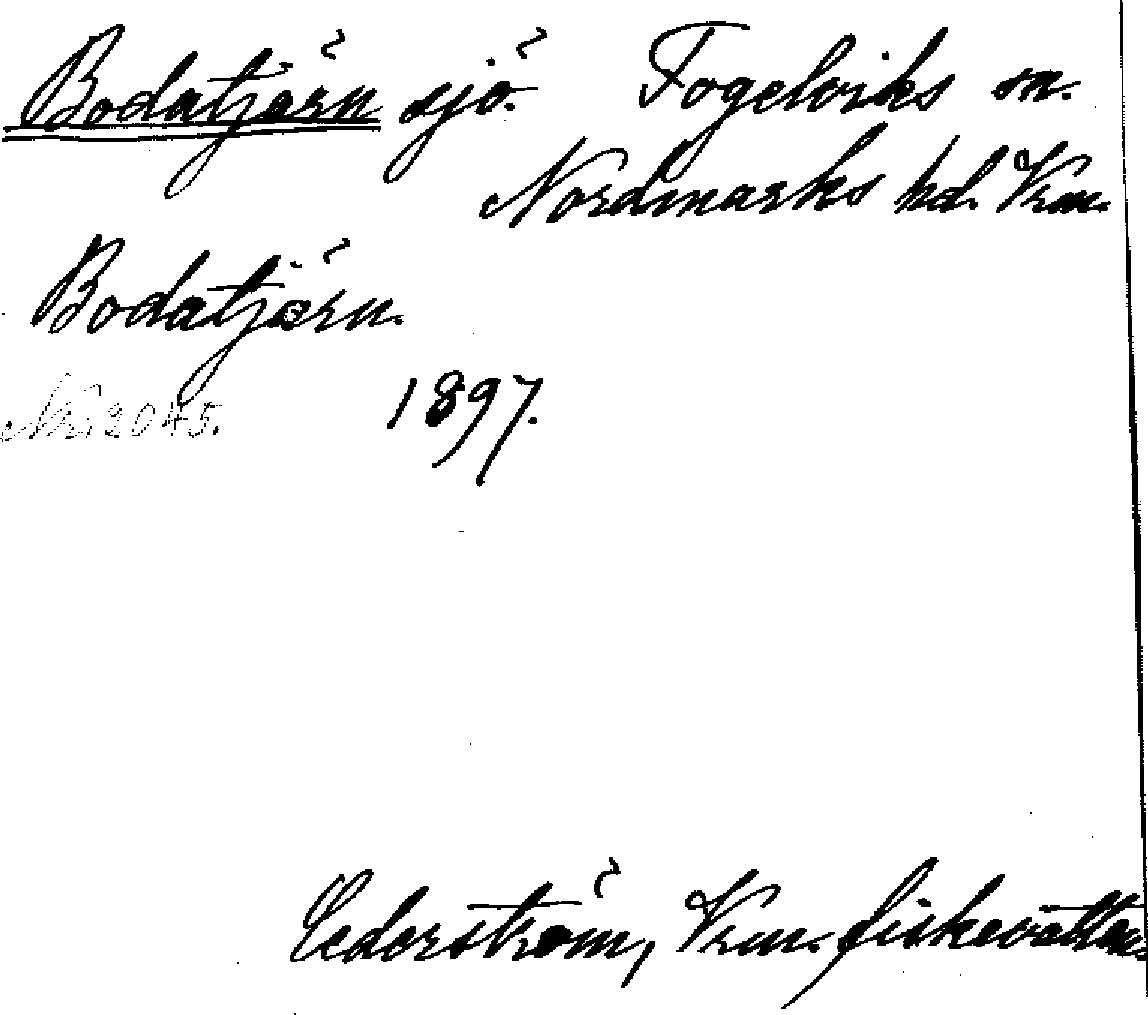 Bodatjärn sjö. Fogelviks sn.
Nordmarks hd. Vrm.
Bodatjärn.
Nr. 2045. 1897.
Cederström, Vrm. fiskevatten.